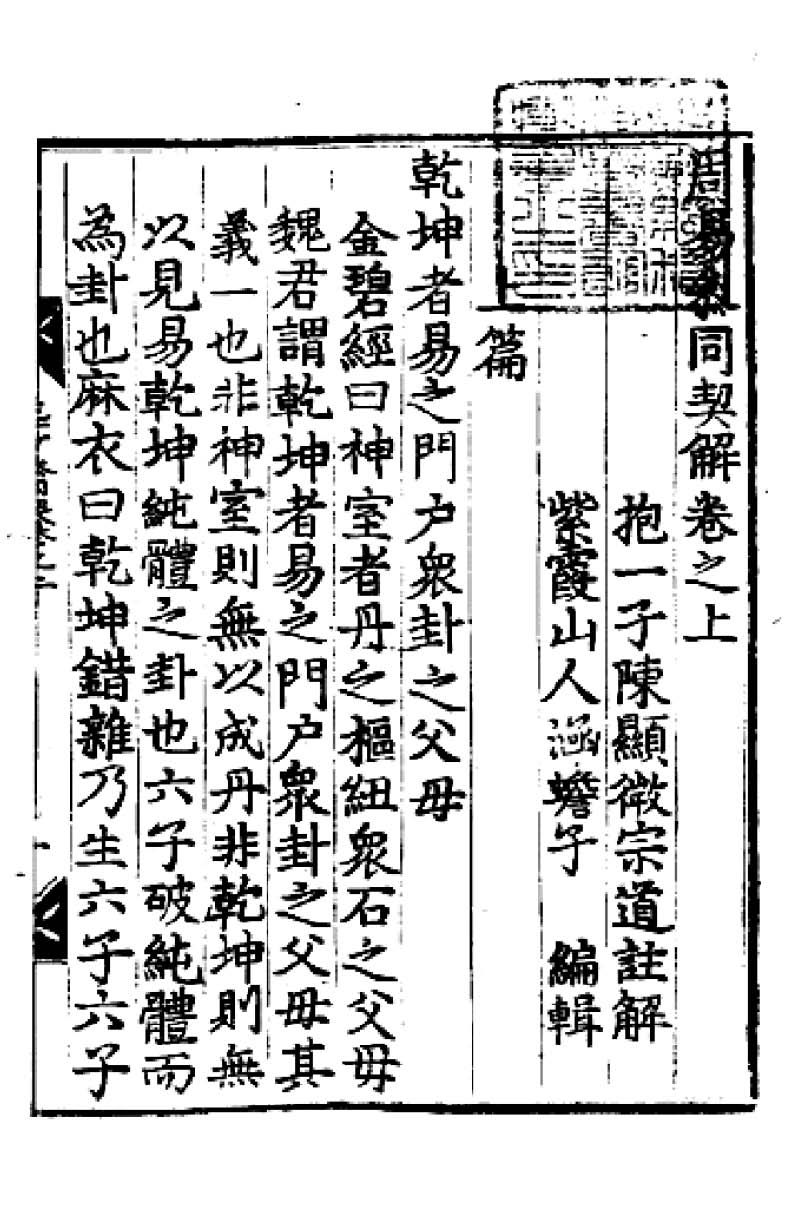 周易參同契解卷之上
抱一子陳顯微宗道註解
紫霞山人涵蟾子 編輯
篇
乾坤者易之門户衆卦之父母
金碧經曰神室者丹之樞紐衆石之父母
魏君謂乾坤者易之門户衆卦之父母其
義一也非神室則無以成丹非乾坤則無
以見易乾坤純體之卦也六子破純體而
為卦也麻衣曰乾坤錯雜乃生六子六子